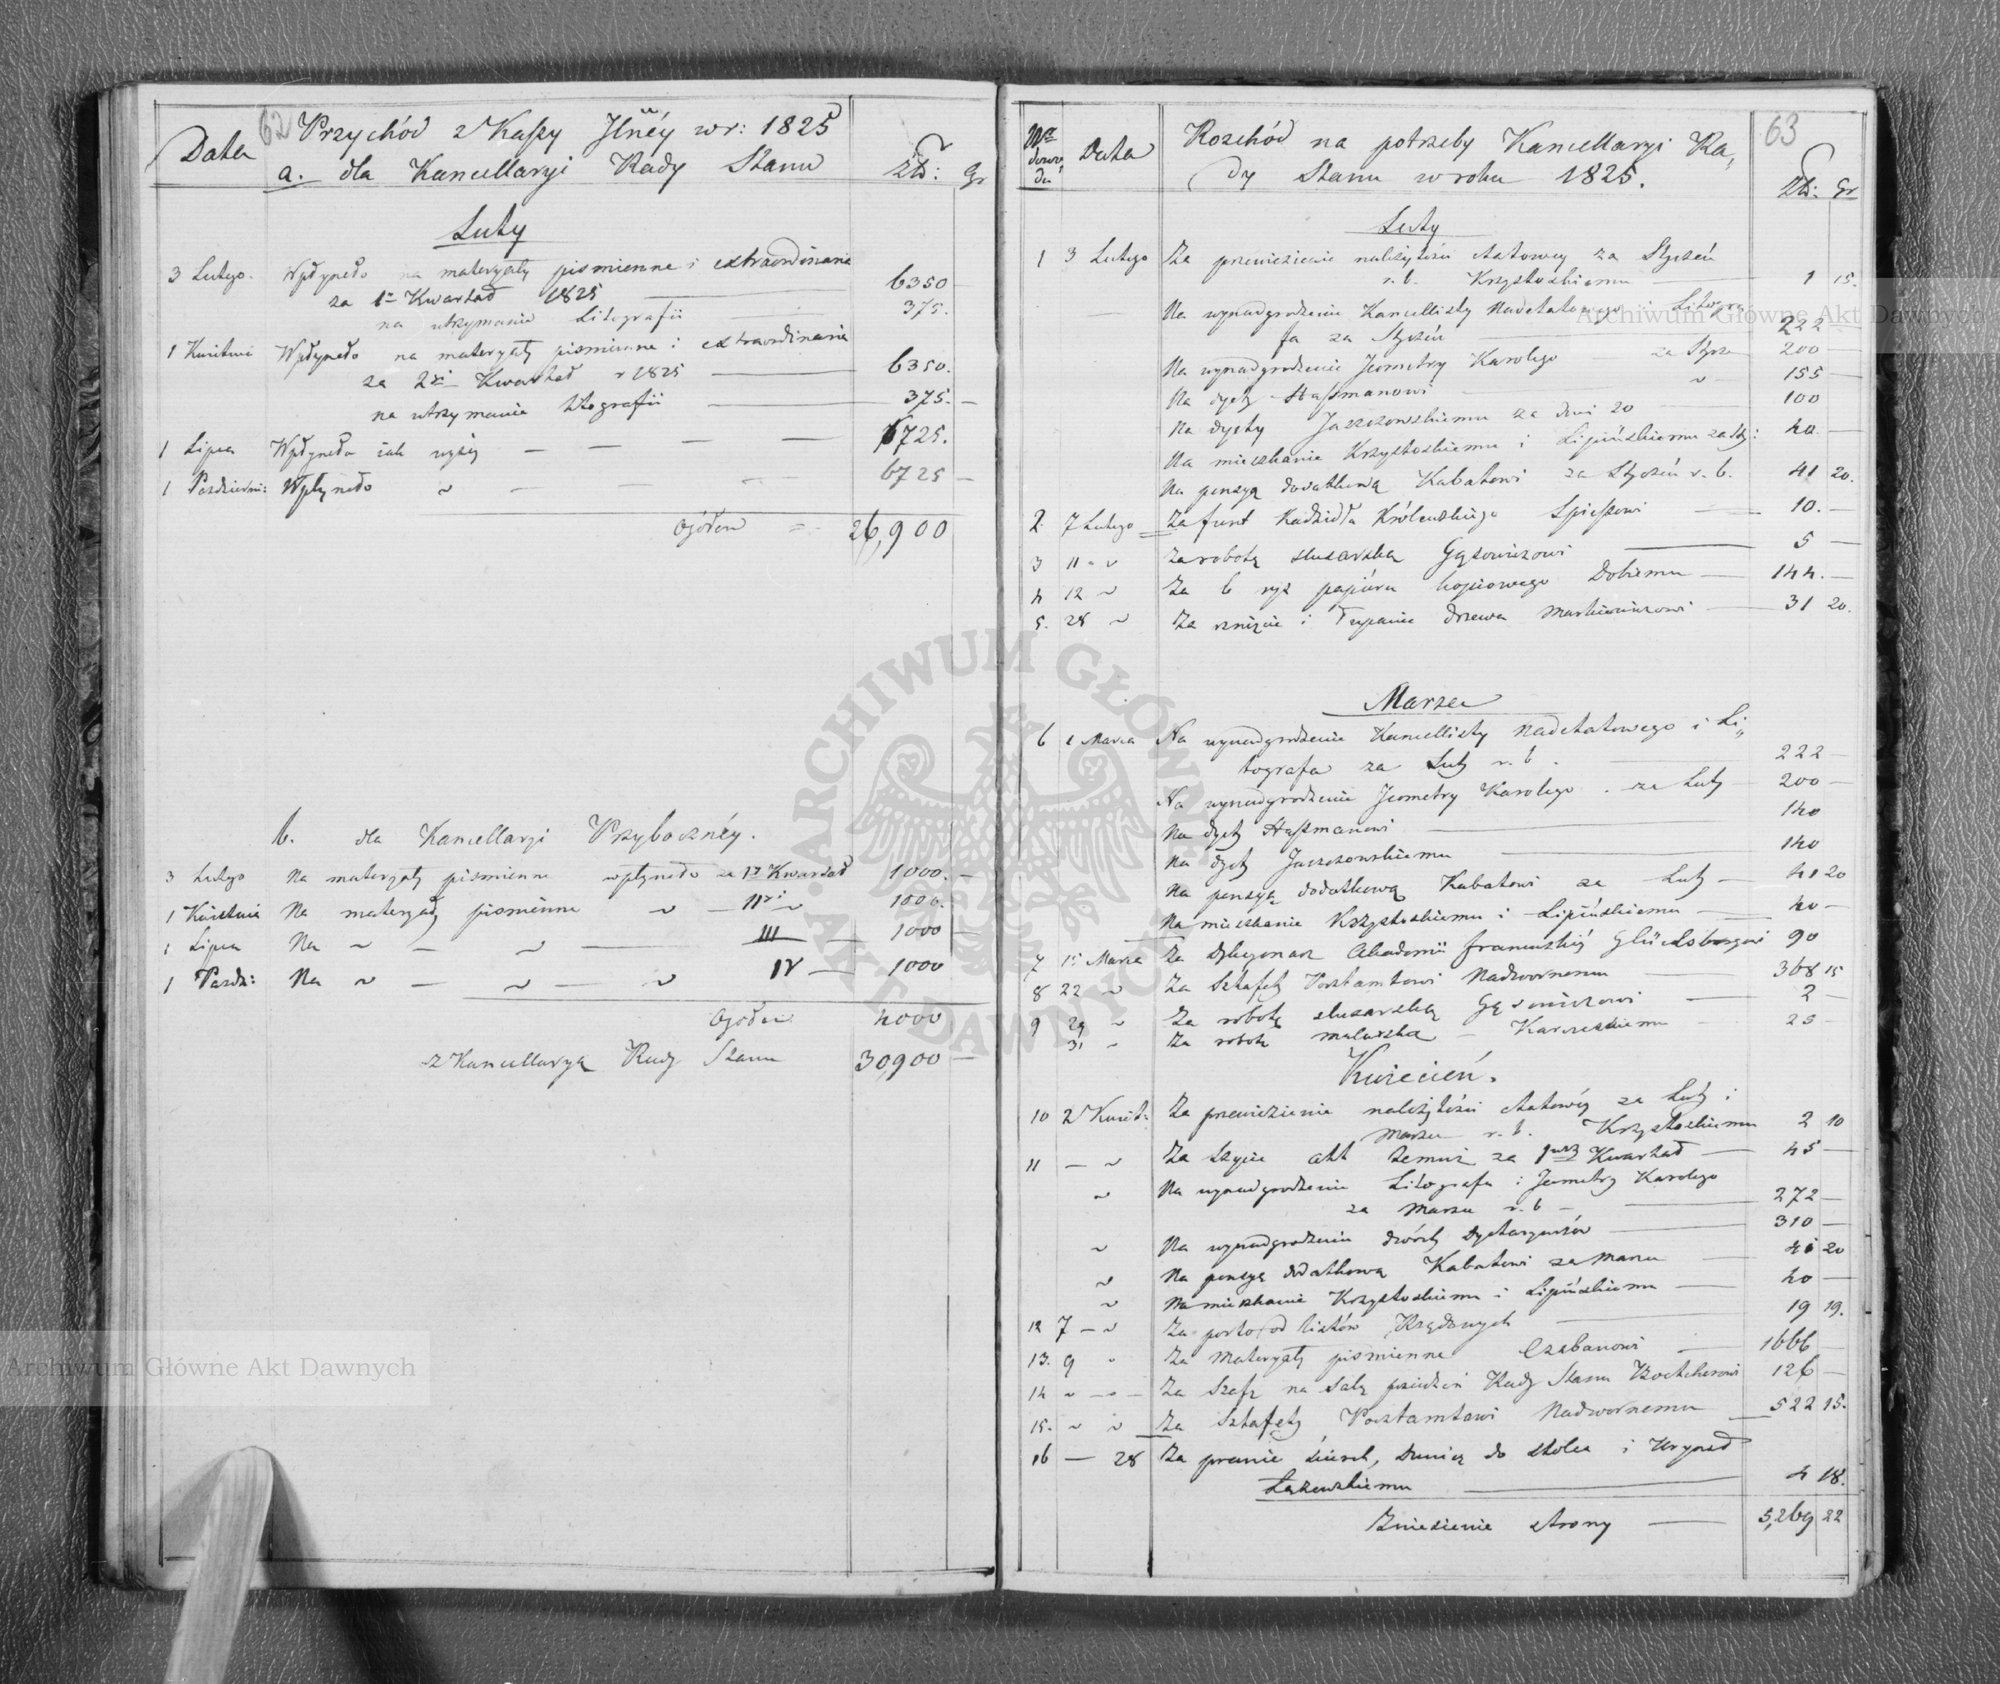 62
Data Przychód z Kassy Jlnéy w r: 1825 Zł: Gr
a. dla Kancellaryi Rady Stanu
Luty
3 Lutego. Wpłynęło na materyały piśmienne i extraordinaria
za 1n Kwartał 1825 6350
na utrzymanie Litografii 375.
1 Kwietnia Wpłynęło na materyały piśmienne i extraordinaria
za 2gi Kwartał r 1825 6350.
na utrzymanie Litografii 375. —
1 Lipca Wpłynęło jak wyżéj — — — — 6725.
1 Październi: Wpłynęło ~ — — — 6725 —
Ogółem = 26,900
b. dla Kancellaryi Przybocznéy.
3 Lutego Na materyały piśmienne wpłynęło za 1y Kwartał 1000. —
1 Kwietnia Na materyały piśmienne ~ — IIgi ~ 1000.
1 Lipca Na ~ — ~ — III — 1000 —
1 Paźdz: Na ~ — ~ — ~ IV — 1000
Ogółem 4000
z Kancellaryą Rady Stanu 30,900 —
63
Nr dowodu Data Rozchód na potrzeby Kancellaryi Ra,
dy Stanu w roku 1825. Zł: Gr
Luty
1 3 Lutego Za przewiezienie należytości etatowey za Styczeń
r. b. Krzystoskiemu — 1 15.
Na wynadgrodzenie Kancellisty Nadetatowego i Litogra
fa za Styczeń — 222 —
Na wynadgrodzenie Jeometry Karolego — za Stycz 200 —
Na dyety Hassmanowi — ~ 155 —
Na dyety Jaczkowskiemu za dni 20 — 100
Na mieszkanie Krzystoskiemu i Lipińskiemu za Sty: 40 —
Na pensyą dodatkową Kabatowi za Styczeń r. b. 41 20.
2. 7 Lutego Za funt Kadzidła Królewskiego Spiessowi — 10. —
3 11 " ~ Za robotę slusarską Gąsowiczowi — 5 —
4 12 ~ Za 6 ryz papieru kopiowego Dobiemu — 144. —
5. 28 ~ Za rznięcie i łupanie drzewa Markiewiczowi — 31 20.
Marzec
6 1 Marca Na wynadgrodzenie Kancellisty Nadetatowego i Li,,
tografa za Luty r. b. — 222 —
Na wynadgrodzenie Jeometry Karolego . za Luty — 200 —
Na dyety Hassmanowi — 140
Na dyety Jaczkowskiemu — 140
Na pensyą dodatkową Kabatowi za Luty — 41 20
Na mieszkanie Krzystoskiemu i Lipińskiemu — 40 —
7 15 Marca Za Dykcyonarz Akademii francuskiéy Glücksbergowi 90
8 22 ~ Za Sztafety Pocztamtowi Nadwornemu — 368 15
9 29 ~ Za robotę slusarską Gąsowiczowi — 2 —
31 ~ Za robotę malarską — 25 —
Kwiecień.
10 2 Kwiet: Za przewiezienie należytości etatowéy za Luty i
Marzec r. b. Krzystoskiemu 2 10
11 — ~ Za szycie akt temuż za 1wszy Kwartał — 45 —
~ Na wynadgrodzenie Litografa i Jeometry Karolego
za Marzec r. b — 272 —
~ Na wynadgrodzenie dwóch Dyetaryuszów — 310 —
~ Na pensyą dodatkową Kabatowi za Marzec — 41 20
~ Na mieszkanie Krzystoskiemu i Lipińskiemu — 40 —
12 7 — ~ Za porto od listów Rządowych — 19 19.
13. 9 " Za Materyały piśmienne Czabanowi — 1666 —
14 ~ — " — Za Szafę na Salę posiedzeń Rady Stanu 126 —
15. ~ ~ Za Sztafety Pocztamtowi Nadwornemu — 522 15.
16 — 28 Za pranie do stołu i
— 4 18.
Zniesienie strony — 5,269 22
Archiwum Główne Akt Dawnych
Archiwum Główne Akt Dawnych
ARCHIWUM GŁÓWNE AKT DAWNYCH